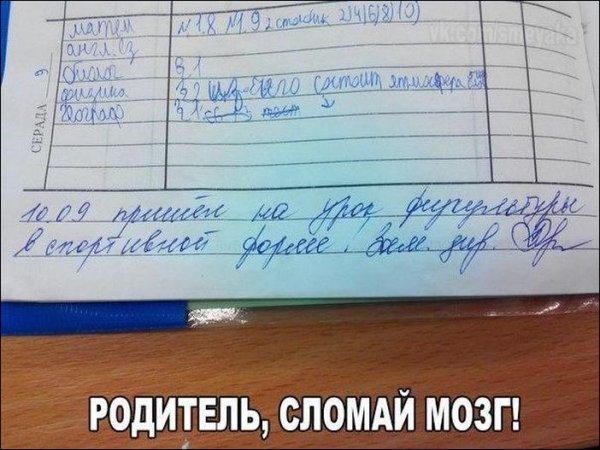 матем №1.8, №1.9 2 столбик 2)4)6)8)10)
vk.com
англ. яз
биолог §1
физика §2 из чего состоит атмосфера
географ §1
СЕРАДА 9
10.09 пришёл на урок физкультуры
в спортивной форме. Зам. дир.
РОДИТЕЛЬ, СЛОМАЙ МОЗГ!